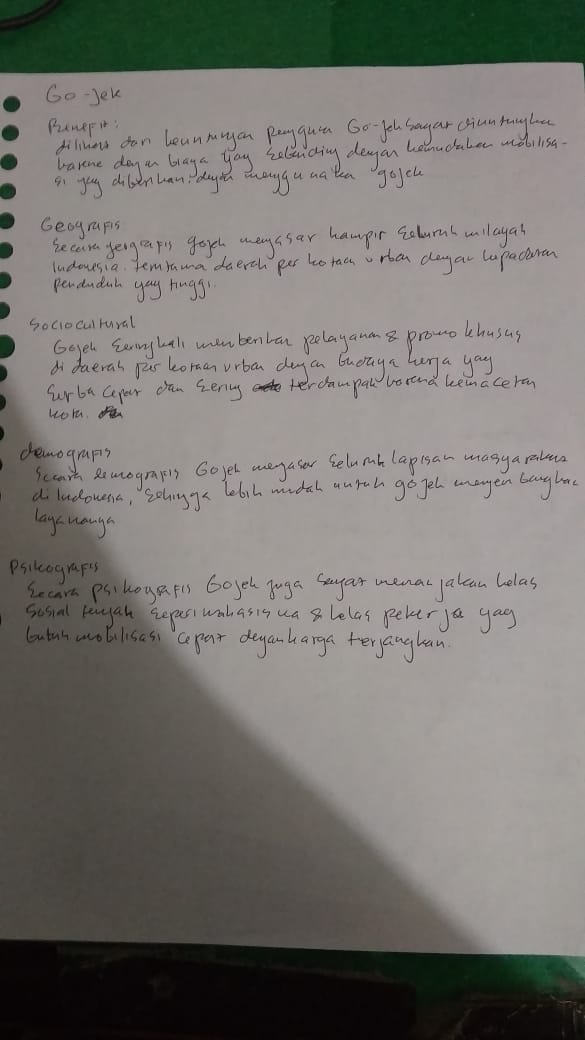 Go-jek
Benefit:
dilihat dari keuntungan pengguna Go-jek sangat diuntungkan
karena dengan biaya yang sebanding dengan kemudahan mobilisa-
si yang diberikan dengan menggunakan gojek
Geografis
Secara geografis gojek menyasar hampir seluruh wilayah
Indonesia. Terutama daerah perkotaan urban dengan kepadatan
penduduk yang tinggi.
Sociocultural
Gojek seringkali memberikan pelayanan & promo khusus
di daerah perkotaan urban dengan budaya kerja yang
serba cepat dan sering terdampak karena kemacetan
kota.
demografis
Secara demografis Gojek menyasar seluruh lapisan masyarakat
di Indonesia, sehingga lebih mudah untuk gojek mengembangkan
layanannya
Psikografis
Secara psikografis Gojek juga sangat menargetkan kelas
sosial tengah seperti mahasiswa & kelas pekerja yag
butuh mobilisasi cepat dengan harga terjangkau.